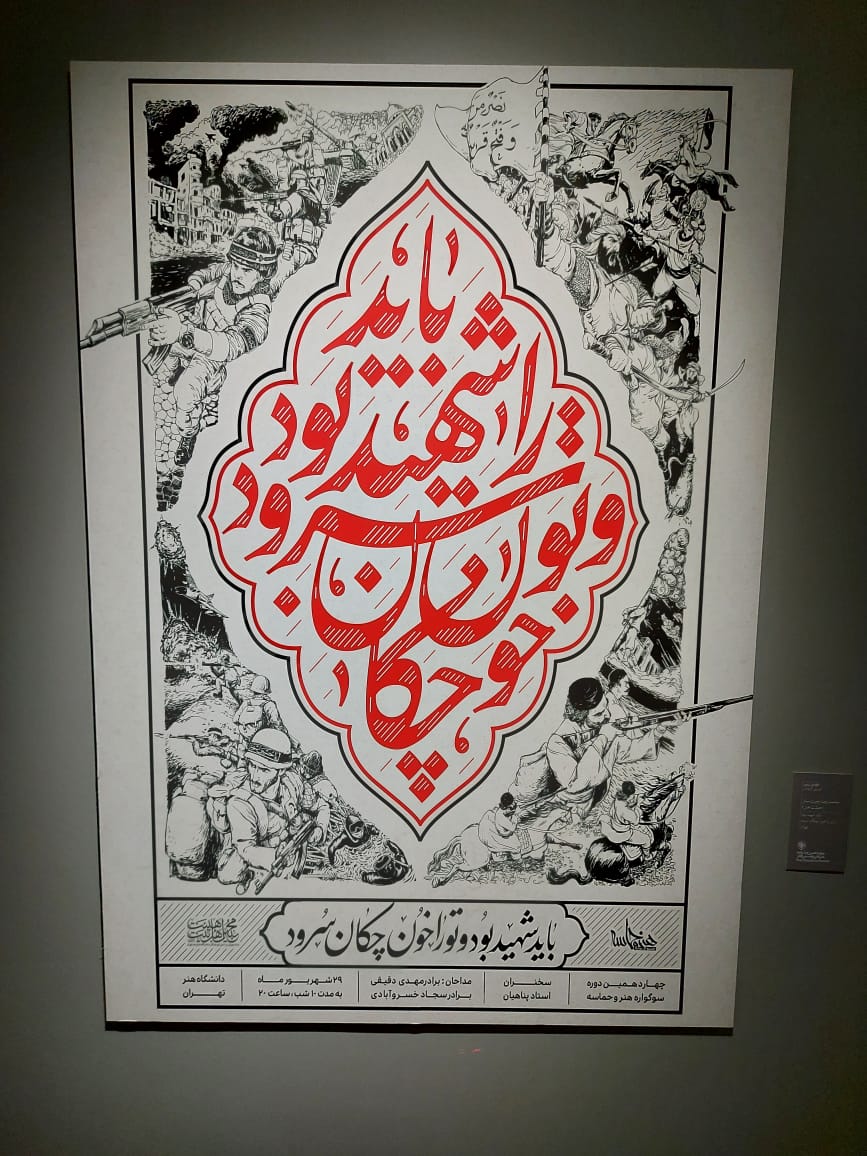 نصر من
و فتح قر
باید
را شهید بود
و توان سرود
خو چکان
باید شهید بود و تو را خون چکان سرود
هنر و حماسه
محبین اهل بیت
چهاردهمین دوره
سوگواره هنر و حماسه
سخنران
استاد پناهیان
مداحان: برادر مهدی دقیقی
برادر سجاد خسروآبادی
۲۹ شهریور ماه
به مدت ۱۰ شب، ساعت ۲۰
دانشگاه هنر
تهران